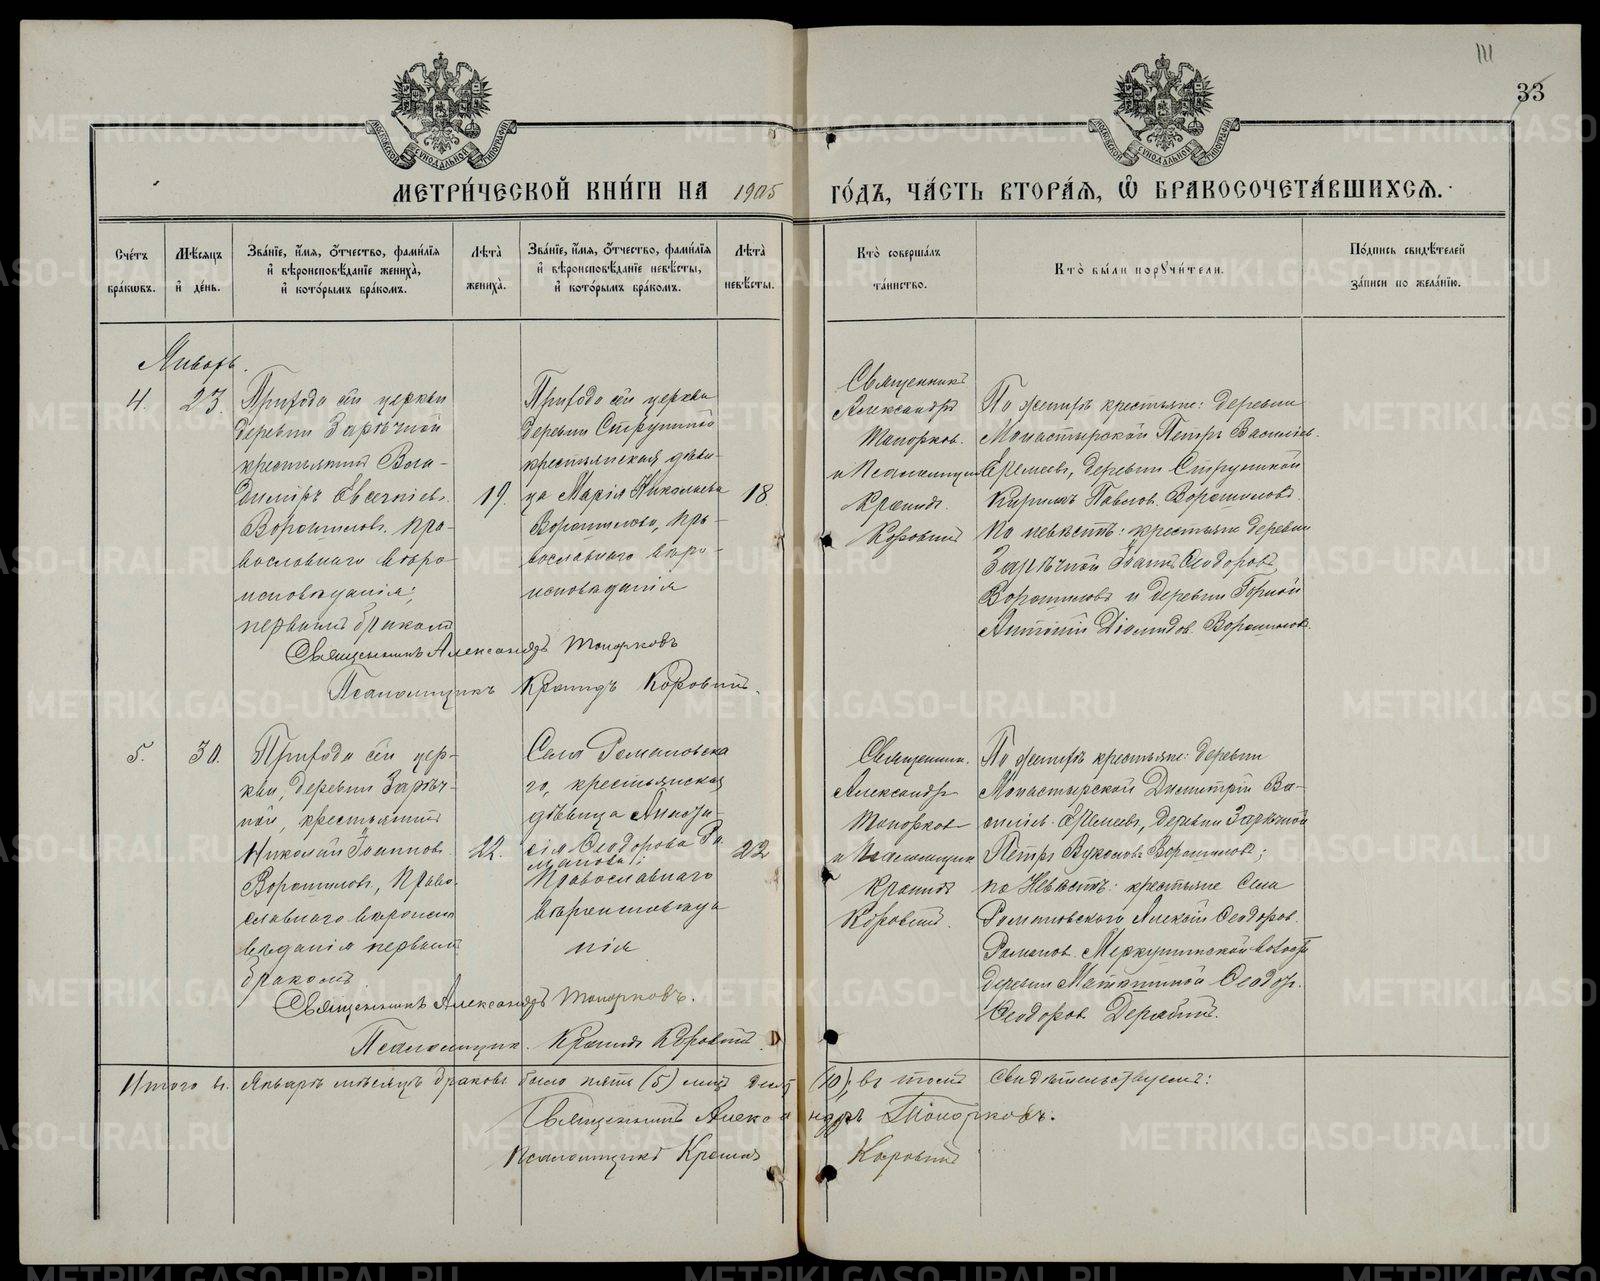 III
33
МЕТРИ́ЧЕСКОЙ КНИ́ГИ НА 1905 ГО́ДЪ, ЧА́СТЬ ВТОРА́Я, Ѡ БРАКОСОЧЕТА́ВШИХСЯ.
Сче́тъ бра́кѡвъ.
Мѣ́сяцъ и҆ де́нь.
Зва́нїе, и҆́мя, ѻ҆́тчество, фами́лїя и҆ вѣроисповѣ́данїе жениха̀, и҆ кото́рымъ бра́комъ.
Лѣ́та жениха̀.
Зва́нїе, и҆́мя, ѻ҆́тчество, фами́лїя и҆ вѣроисповѣ́данїе невѣ́сты, и҆ кото́рымъ бра́комъ.
Лѣ́та невѣ́сты.
Кто̀ соверша́лъ та́инство.
Кто̀ бы́ли порꙋчи́тели.
По́дпись свидѣ́телей за́писи по жела́нїю.
Январь.
4.
23.
Прихода сей церкви
деревни Зарѣчной
крестьянинъ Вла-
димiръ Евсегнiевъ
Ворошиловъ, пра-
вославнаго вѣро-
исповѣданiя,
первымъ бракомъ
19.
Прихода сей церкви
деревни
крестьянская дѣви-
ца Марiя Николаева
Ворошилова, пра-
вославнаго вѣро-
исповѣданiя
18
Священникъ
Александръ
Топорковъ
и Псаломщикъ
Кронидъ
Коровинъ
По женихѣ крестьяне: деревни
Монастырской Петръ Васильев.
Еремеевъ, деревни
Кириллъ Павловъ Ворошиловъ
по невѣстѣ: крестьяне деревни
Зарѣчной Iоаннъ Ѳеодоровъ
Ворошиловъ и деревни Горной
Антонiй Дiомидовъ Ворошиловъ
Священникъ Александръ Топорковъ
Псаломщикъ Кронидъ Коровинъ.
5.
30.
Прихода сей цер-
кви, деревни Зарѣч-
ной, крестьянинъ
Николай Iоанновъ
Ворошиловъ, право-
славнаго вѣроиспо-
вѣданiя первымъ
бракомъ
22.
Села Романовска
го, крестьянская
дѣвица Анаста-
сiя Ѳеодорова Ро
манова;
Православнаго
вѣроисповѣда
нiя
22
Священникъ
Александръ
Топорковъ
и Псаломщикъ
Кронидъ
Коровинъ.
По женихѣ крестьяне: деревни
Монастырской Димитрiй Ва-
силiев. Еремеевъ, деревни Зарѣчной
Петръ Вуколовъ Ворошиловъ;
по Невѣстѣ: крестьяне Села
Романовскаго Алексiй Ѳеодоров.
Романов. Меркушинской волости
деревни Ѳеодоръ
Ѳеодоров. Дерябинъ.
Священникъ Александръ Топорковъ.
Псаломщикъ Кронидъ Коровинъ.
Итого въ Январѣ мѣсяцѣ браковъ было пять (5) лицъ десять (10); въ томъ свидѣтельствуемъ:
Священникъ Александръ Топорковъ.
Псаломщикъ Кронидъ Коровинъ
METRIKI.GASO-URAL.RU